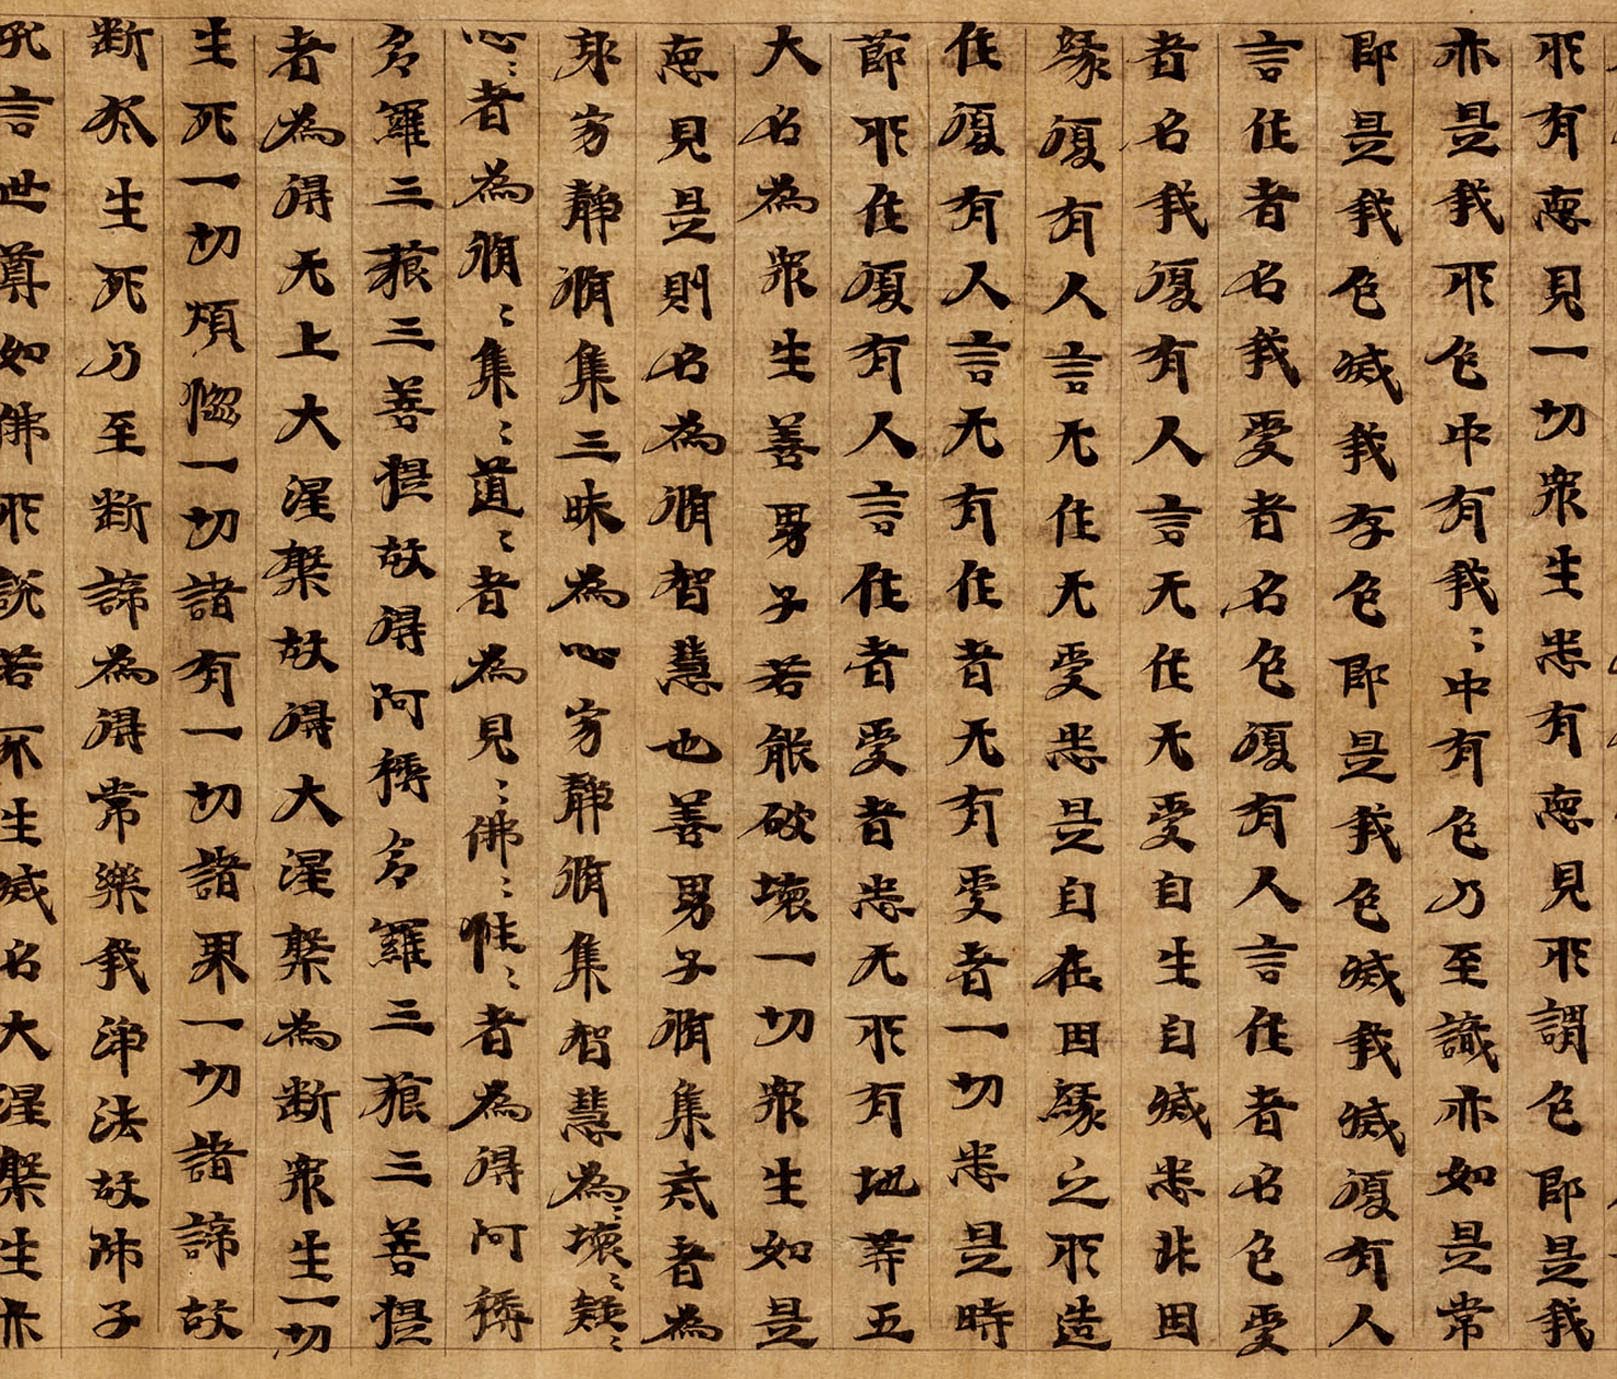 所有惡見一切衆生悉有惡見所謂色即是我
亦是我所色中有我〻中有色乃至識亦如是常
即是我色滅我存色即是我色滅我滅復有人
言住者名我受者名色復有人言住者名色受
者名我復有人言无住无受自生自滅悉非因
緣復有人言无住无受悉是自在因緣之所造
住復有人言无有住者无有受者一切悉是時
節所住復有人言住者受者悉无所有地等五
大名為衆生善男子若能破壞一切衆生如是
惡見是則名為脩智慧也善男子脩集戒者為
身寂靜脩集三昧為心寂靜脩集智慧為〻壞〻疑〻
心〻者為脩〻集〻道〻者為見〻佛〻性〻者為得阿耨
多羅三藐三菩提故得阿耨多羅三藐三菩提
者為得无上大涅槃故得大涅槃為断衆生一切
生死一切煩惱一切諸有一切諸界一切諸諦故
断於生死乃至断諦為得常樂我淨法故師子
吼言世尊如佛所說若不生滅名大涅槃生亦